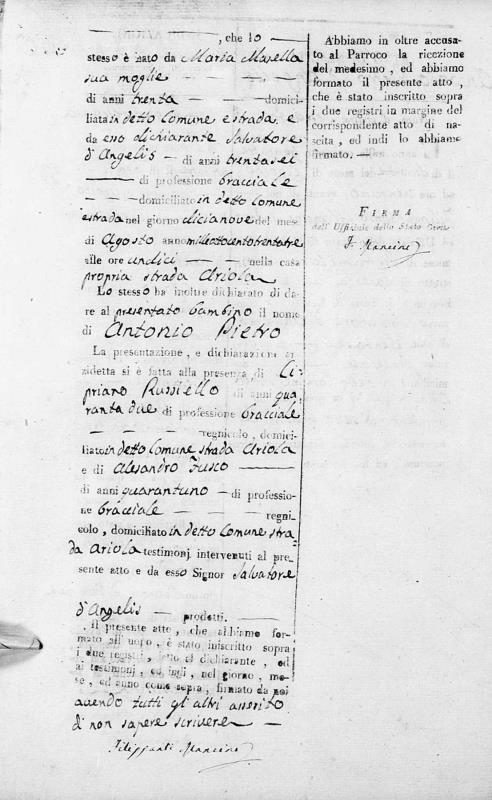 , che lo
stesso è nato da Maria Masella
sua moglie
di anni trenta domici-
liata in detto Comune e strada e
da esso dichiarante Salvatore
d'Angelis di anni trentasei
di professione bracciale
domiciliato in detto Comune
e strada nel giorno dicianove del mese
di Agosto anno milleottocentotrentatre
alle ore undici nella casa
propria strada Ariola
Lo stesso ha inoltre dichiarato di da-
re al presentato bambino il nome
di Antonio Pietro
La presentazione, e dichiarazione an-
zidetta si è fatta alla presenza di Ci-
priano Russiello di anni qua-
ranta due di professione bracciale
regnicolo, domici-
liato in detto Comune strada Ariola
e di Alesandro Fusco
di anni quarantuno di professio-
ne bracciale regni-
colo, domiciliato in detto Comune stra-
da Ariola testimonj intervenuti al pre-
sente atto e da esso Signor Salvatore
d'Angelis prodotti.
Il presente atto, che abbiamo for-
mato all'uopo, è stato inscritto sopra
i due registri, letto al dichiarante, ed
ai testimonj, ed indi, nel giorno, me-
se, ed anno come sopra, firmato da noi
avendo tutti gli altri asserito
di non sapere scrivere
Mancini
Abbiamo in oltre accusa-
to al Parroco la ricezione
del medesimo, ed abbiamo
formato il presente atto,
che è stato inscritto sopra
i due registri in margine del
corrispondente atto di na-
scita, ed indi lo abbiamo
firmato.
FIRMA
dell'Uffiziale dello Stato Civile
F. Mancini